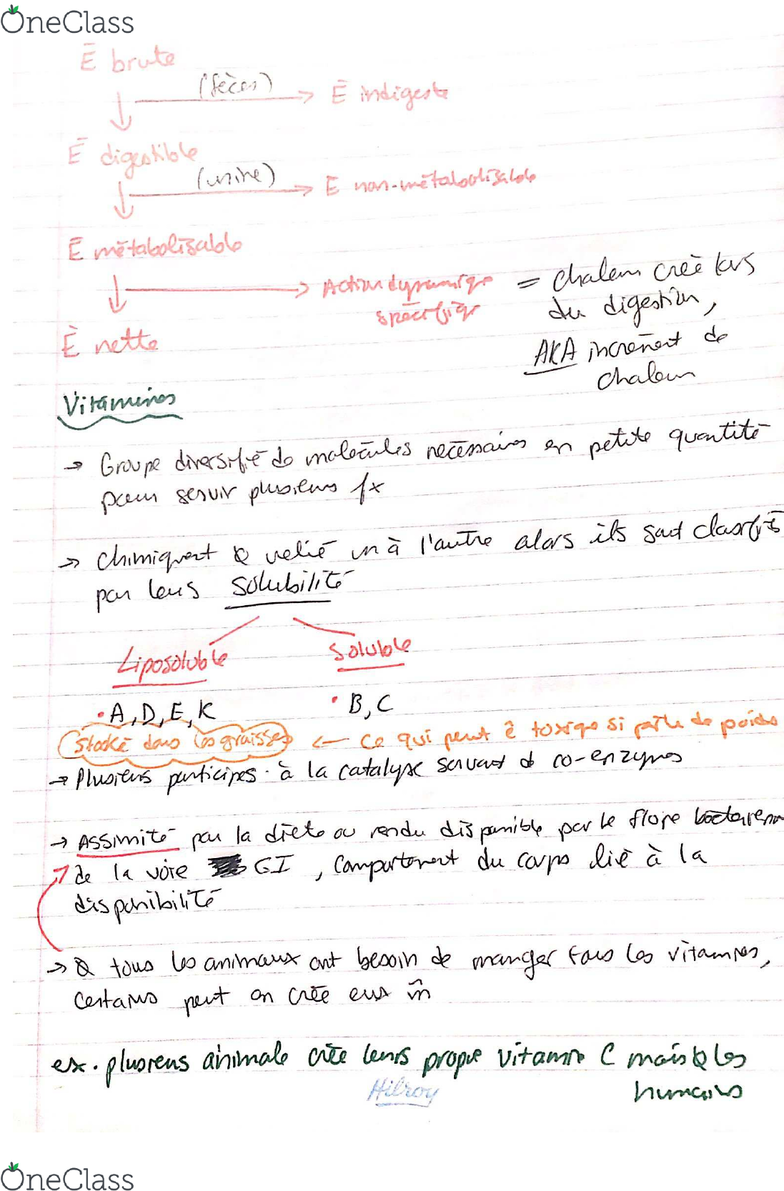 OneClass
Ē brute
(fèces)
Ē indigeste
Ē digestible
(urine)
Ē non-métabolisable
Ē métabolisable
Action dynamique
spécifique
= chaleur créé lors
du digestion,
AKA incrément de
chaleur
Ē nette
Vitamines
→ Groupe diversifié de molécules nécessaires en petite quantité
pour servir plusieurs fx
→ Chimiquent relié un à l'autre alors ils sont classifié
par leurs solubilité
Liposoluble
Soluble
• A, D, E, K
• B, C
Stocké dans les graisses ← ce qui peut ê toxique si perte de poids
→ Plusieurs participes à la catalyse servant d co-enzymes
→ Assimité par la diète ou rendu disponible par le flore
de la voie GI, comportement du corps lié à la
disponibilité
→ tous les animaux ont besoin de manger tous les vitamines,
certains peut en crée eux m̂
ex. plusieurs animale crée leurs propre vitamine C mais les
humains
Hilroy
OneClass